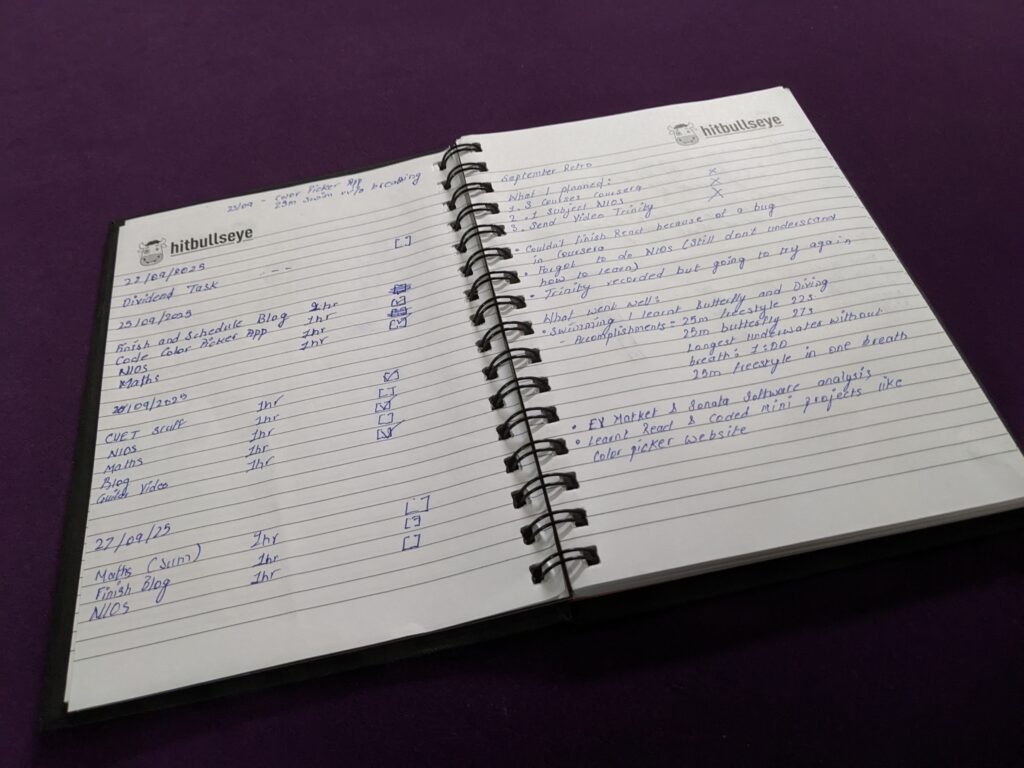 23/09 - Color Picker App
25m swim w/o breathing
hitbullseye
22/09/2025
Dividend Task [ ]
25/09/2025
Finish and Schedule Blog 2hr
Code Color Picker App 1hr
NIOS 1hr
Maths 1hr
26/09/2025
CUET Stuff 1hr
NIOS 1hr
Maths 1hr
Blog 1hr
Guitar Video 1hr
27/09/25
Maths (Sum) 2hr [ ]
Finish Blog 1hr [ ]
NIOS 1hr [ ]
hitbullseye
September Retro
What I planned:
1. 3 Courses Coursera X
2. 1 Subject NIOS X
3. Send Video Trinity X
• Couldn't finish React because of a bug
in Coursera
• Forgot to do NIOS (Still don't understand
how to learn)
• Trinity recorded but going to try again
What went well:
• Swimming I learnt Butterfly and Diving
- Accomplishments = 25m freestyle 22s
25m butterfly 27s
Longest underwater without
breath: 1:00
25m freestyle in one breath
• EV Market & Sonata Software analysis
• Learnt React & coded mini projects like
Color picker website